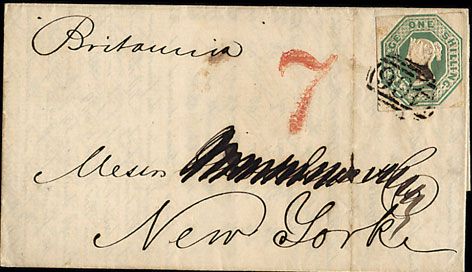 Britannia
ONE SHILLING
7
Messrs
New York